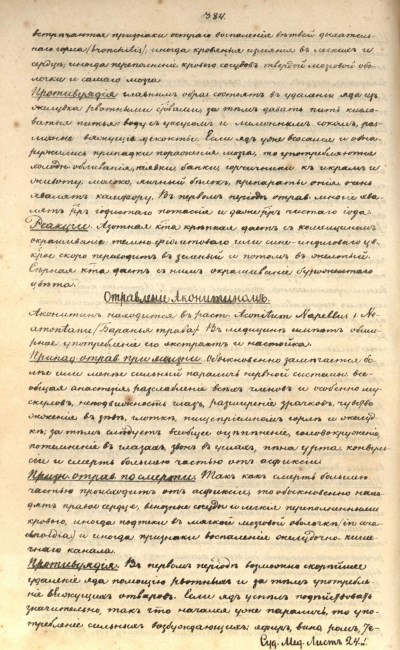 384.
встрѣчаются признаки остраго воспаленія вѣтвей дыхатель-
наго горла (bronchitis), иногда кровеныя въ легкихъ и
сердцѣ, иногда переполненіе кровью сосудовъ твердой мозговой обо-
лочки и самаго мозга
Противуядія главнымъ образ. состоятъ въ удаленіи яда изъ
желудка рвотными, за тѣмъ давать пить кисло-
ватыя питья: воду съ уксусомъ и лимоннымъ сокомъ, раз-
личные вяжущіе декокты. Если ядъ уже всосался и обна-
ружились припадки пораженія мозга, то употребляются
холодныя обливанія, піявки, банки, горчичники къ икрамъ и
животу, молоко, яичный бѣлокъ, препараты опія очень
хвалятъ камфору. Въ первомъ періодѣ отрав. многіе хва-
лятъ іодистаго потассія и даже чистаго іода.
Реакціи: Азотная к-та крѣпкая даетъ съ
окрашиваніе темно-фіолетоваго или сине-индиговаго цвѣ-
та, которое скоро переходитъ въ зеленый и потомъ въ желтый.
Сѣрная к-та даетъ съ нимъ окрашиваніе
цвѣта.
Отравленіе Аконитиномъ.
Аконитинъ находится въ раст. Aconitum Napellus и
(Баранья трава). Въ медицинѣ имѣетъ обшир-
ное употребленіе его экстрактъ и настойка.
Припад. отрав. при жизни. Обыкновенно замѣчается бо-
лѣе или менѣе сильный параличъ нервной системы: все-
общая анастезія, разслабленіе всѣхъ членовъ и особенно му-
скуловъ, неподвижность глазъ, расширеніе зрачковъ, чувство
жженія въ зѣвѣ, глоткѣ, пищепріемномъ горлѣ и желуд-
кѣ; за тѣмъ слѣдуетъ всеобщее оцѣпененіе, головокруженіе,
потемнѣніе въ глазахъ, звонъ въ ушахъ, пѣна у рта, конвуль-
сіи и смерть большею частью отъ асфиксіи
Призн. отрав. по смерти. Такъ какъ смерть большею
частью происходитъ отъ асфиксіи, то обыкновенно нахо-
дятъ правое сердце, венозные сосуды и легкія переполненными
кровью, иногда подтеки въ мягкой мозговой оболочкѣ (in ara-
chnoidea) и иногда признаки воспаленія желудочно-кише-
чнаго канала.
Противуядія. Въ первомъ періодѣ возможно скорѣйшее
удаленіе яда помощію рвотныхъ и за тѣмъ употребле-
ніе вяжущихъ отваровъ. Если ядъ успѣлъ подѣйствовать
значительно, такъ что начался уже параличъ, то упо-
требленіе сильныхъ возбуждающихъ: эфиръ, вина ромъ,
Суд. Мед. Листъ 24.